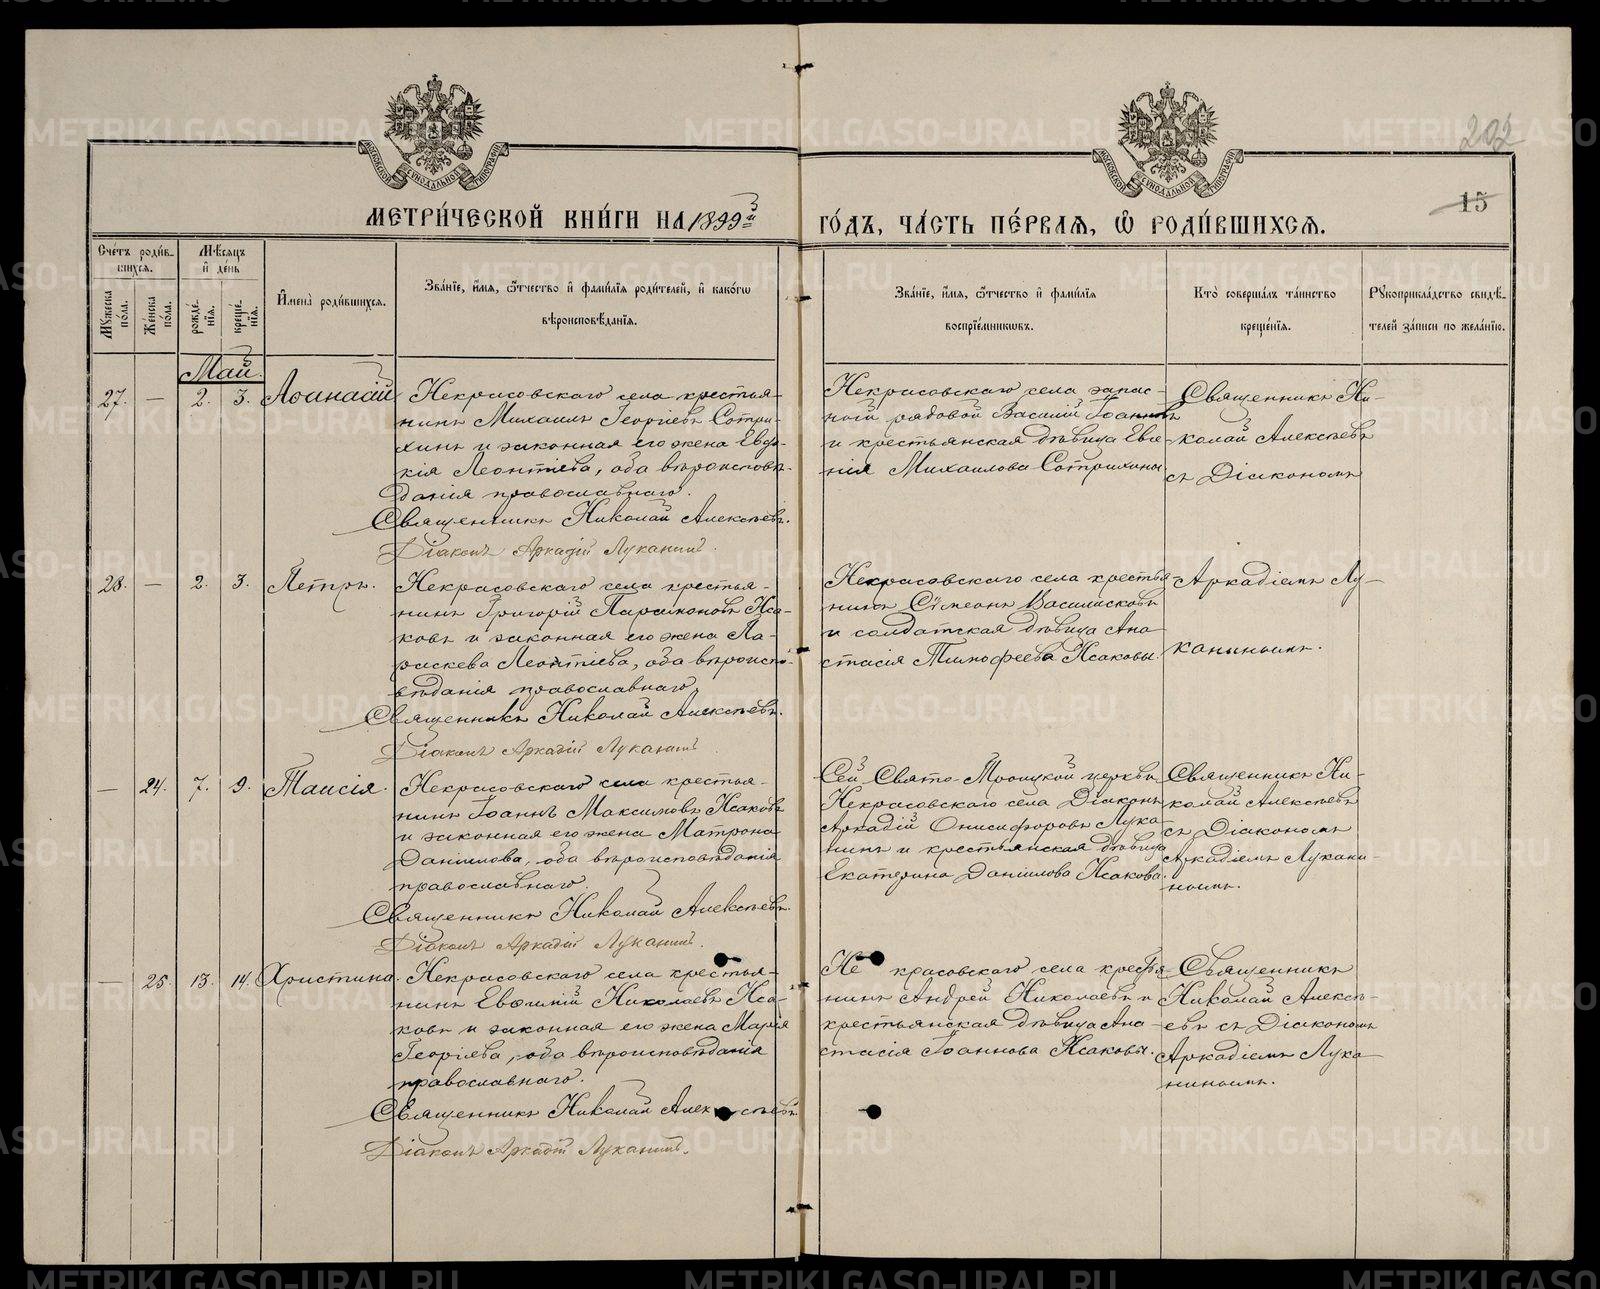 202
15
МЕТРИ́ЧЕСКОЙ КНИ́ГИ НА 1899й ГО́ДЪ, ЧА́СТЬ ПЕ́РВАѦ, Ѡ҆ РОДИ́ВШИХСѦ.
Сче́тъ роди́вшихсѧ.
Мꙋ́жеска по́ла.
Же́нска по́ла.
Мѣ́сѧцъ и҆ де́нь
рожде́нїѧ.
креще́нїѧ.
И҆мена̀ роди́вшихсѧ.
Зва́нїе, и҆́мѧ, ѻ҆́тчество и҆ фамі́лїѧ роди́телей, и҆ како́гѡ
вѣроисповѣ́данїѧ.
Зва́нїе, и҆́мѧ, ѻ҆́тчество и҆ фамі́лїѧ
воспрїе́мникѡвъ.
Кто̀ соверша́лъ та́инство
креще́нїѧ.
Рꙋкоприкла́дство свидѣ́-
телей за́писи по жела́нїю.
Май
27. — 2. 3. Аѳанасій
Некрасовскаго села крестья-
нинъ Михаилъ Георгіевъ Сотри-
хинъ и законная его жена Евдо-
кія Леонтіева, оба вѣроиспов-
данія православнаго.
Священникъ Николай Алексѣевъ.
Діаконъ Аркадій Луканинъ.
Некрасовскаго села запас-
ной рядовой Василій Іоанновъ
и крестьянская дѣвица Евге-
нія Михаилова Сотрихины
Священникъ Ни-
колай Алексѣевъ
съ Діакономъ
28. — 2. 3. Петръ.
Некрасовскаго села крестья-
нинъ Григорій Парамоновъ Иса-
ковъ и законная его жена Па-
раскева Леонтіева, оба вѣроиспо-
вѣданія православнаго.
Священникъ Николай Алексѣевъ.
Діаконъ Аркадій Луканинъ.
Некрасовскаго села крестья-
нинъ Сѵмеонъ
и солдатская дѣвица Ана-
стасія Тимофеева Исаковы.
Аркадіемъ Лу-
канинымъ.
— 24. 7. 9. Таисія.
Некрасовскаго села крестья-
нинъ Іоаннъ Максимовъ Исаковъ
и законная его жена Матрона
Даниилова, оба вѣроисповѣданія
православнаго.
Священникъ Николай Алексѣевъ.
Діаконъ Аркадій Луканинъ.
Сей Свято-Троицкой церкви
Некрасовскаго села Діаконъ
Аркадій Онисифоровъ Лука-
нинъ и крестьянская дѣвица
Екатерина Даніилова Исакова.
Священникъ Ни-
колай Алексѣевъ
съ Діакономъ
Аркадіемъ Лукани-
нымъ.
— 25. 13. 14. Христина.
Некрасовскаго села крестья-
нинъ Евѳимій Николаевъ Иса-
ковъ и законная его жена Марія
Георгіева, оба вѣроисповѣданія
православнаго.
Священникъ Николай Алексѣевъ.
Діаконъ Аркадій Луканинъ.
Некрасовскаго села крестья-
нинъ Андрей Николаевъ и
крестьянская дѣвица Ана-
стасія Іоаннова Исаковы.
Священникъ
Николай Алексѣ-
евъ съ Діакономъ
Аркадіемъ Лука-
нинымъ.
METRIKI.GASO-URAL.RU